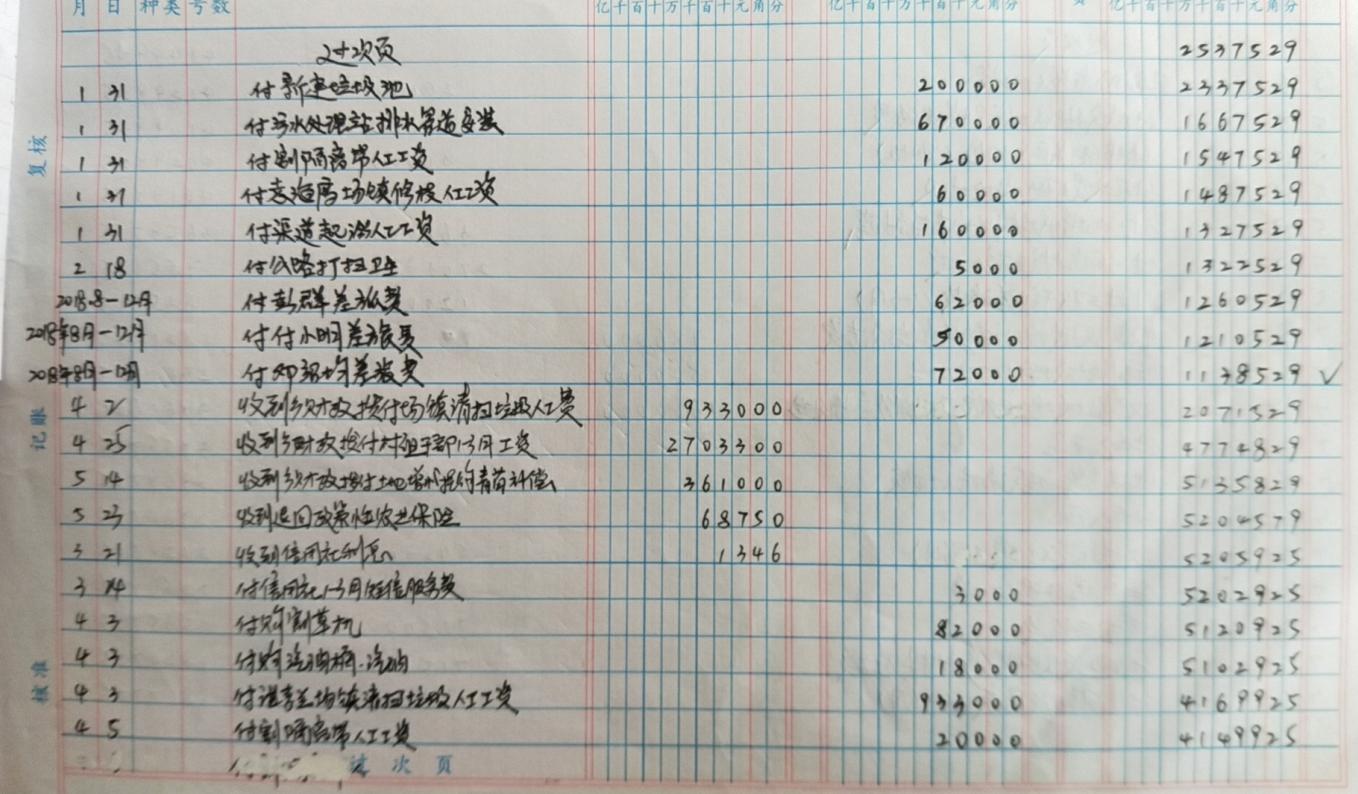 月 日 种类 号数 亿千百十万千百十元角分 亿千百十万千百十元角分 亿千百十万千百十元角分
过次页 2537529
1 31 付新建垃圾池 200000 2337529
1 31 付污水处理站排水管道安装 670000 1667529
1 31 付割隔离带人工工资 120000 1547529
1 31 付 场镇修 人工工资 60000 1487529
1 31 付渠道起 人工工资 160000 1327529
2 18 付公路打扫卫生 5000 1322529
2018.8-12月 付彭群差旅费 62000 1260529
2018年8月-12月 付付小明差旅费 50000 1210529
2018年8月-12月 付邓绍均差旅费 72000 1138529 √
4 2 收到乡财政拨付场镇清扫垃圾人工费 933000 2071529
4 25 收到乡财政拨付村组干部1-3月工资 2703300 4774829
5 14 收到乡财政拨付土地增减挂钩青苗补偿 361000 5135829
5 23 收到退回政策性农业保险 68750 5204579
3 21 收到信用社利息 1346 5205925
3 14 付信用社1-3月短信服务费 3000 5202925
4 3 付购割草机 82000 5120925
4 3 付购汽油桶.汽油 18000 5102925
4 3 付 场镇清扫垃圾人工工资 933000 4169925
4 5 付割隔离带人工工资 20000 4149925
过次页
复核
记账
核准